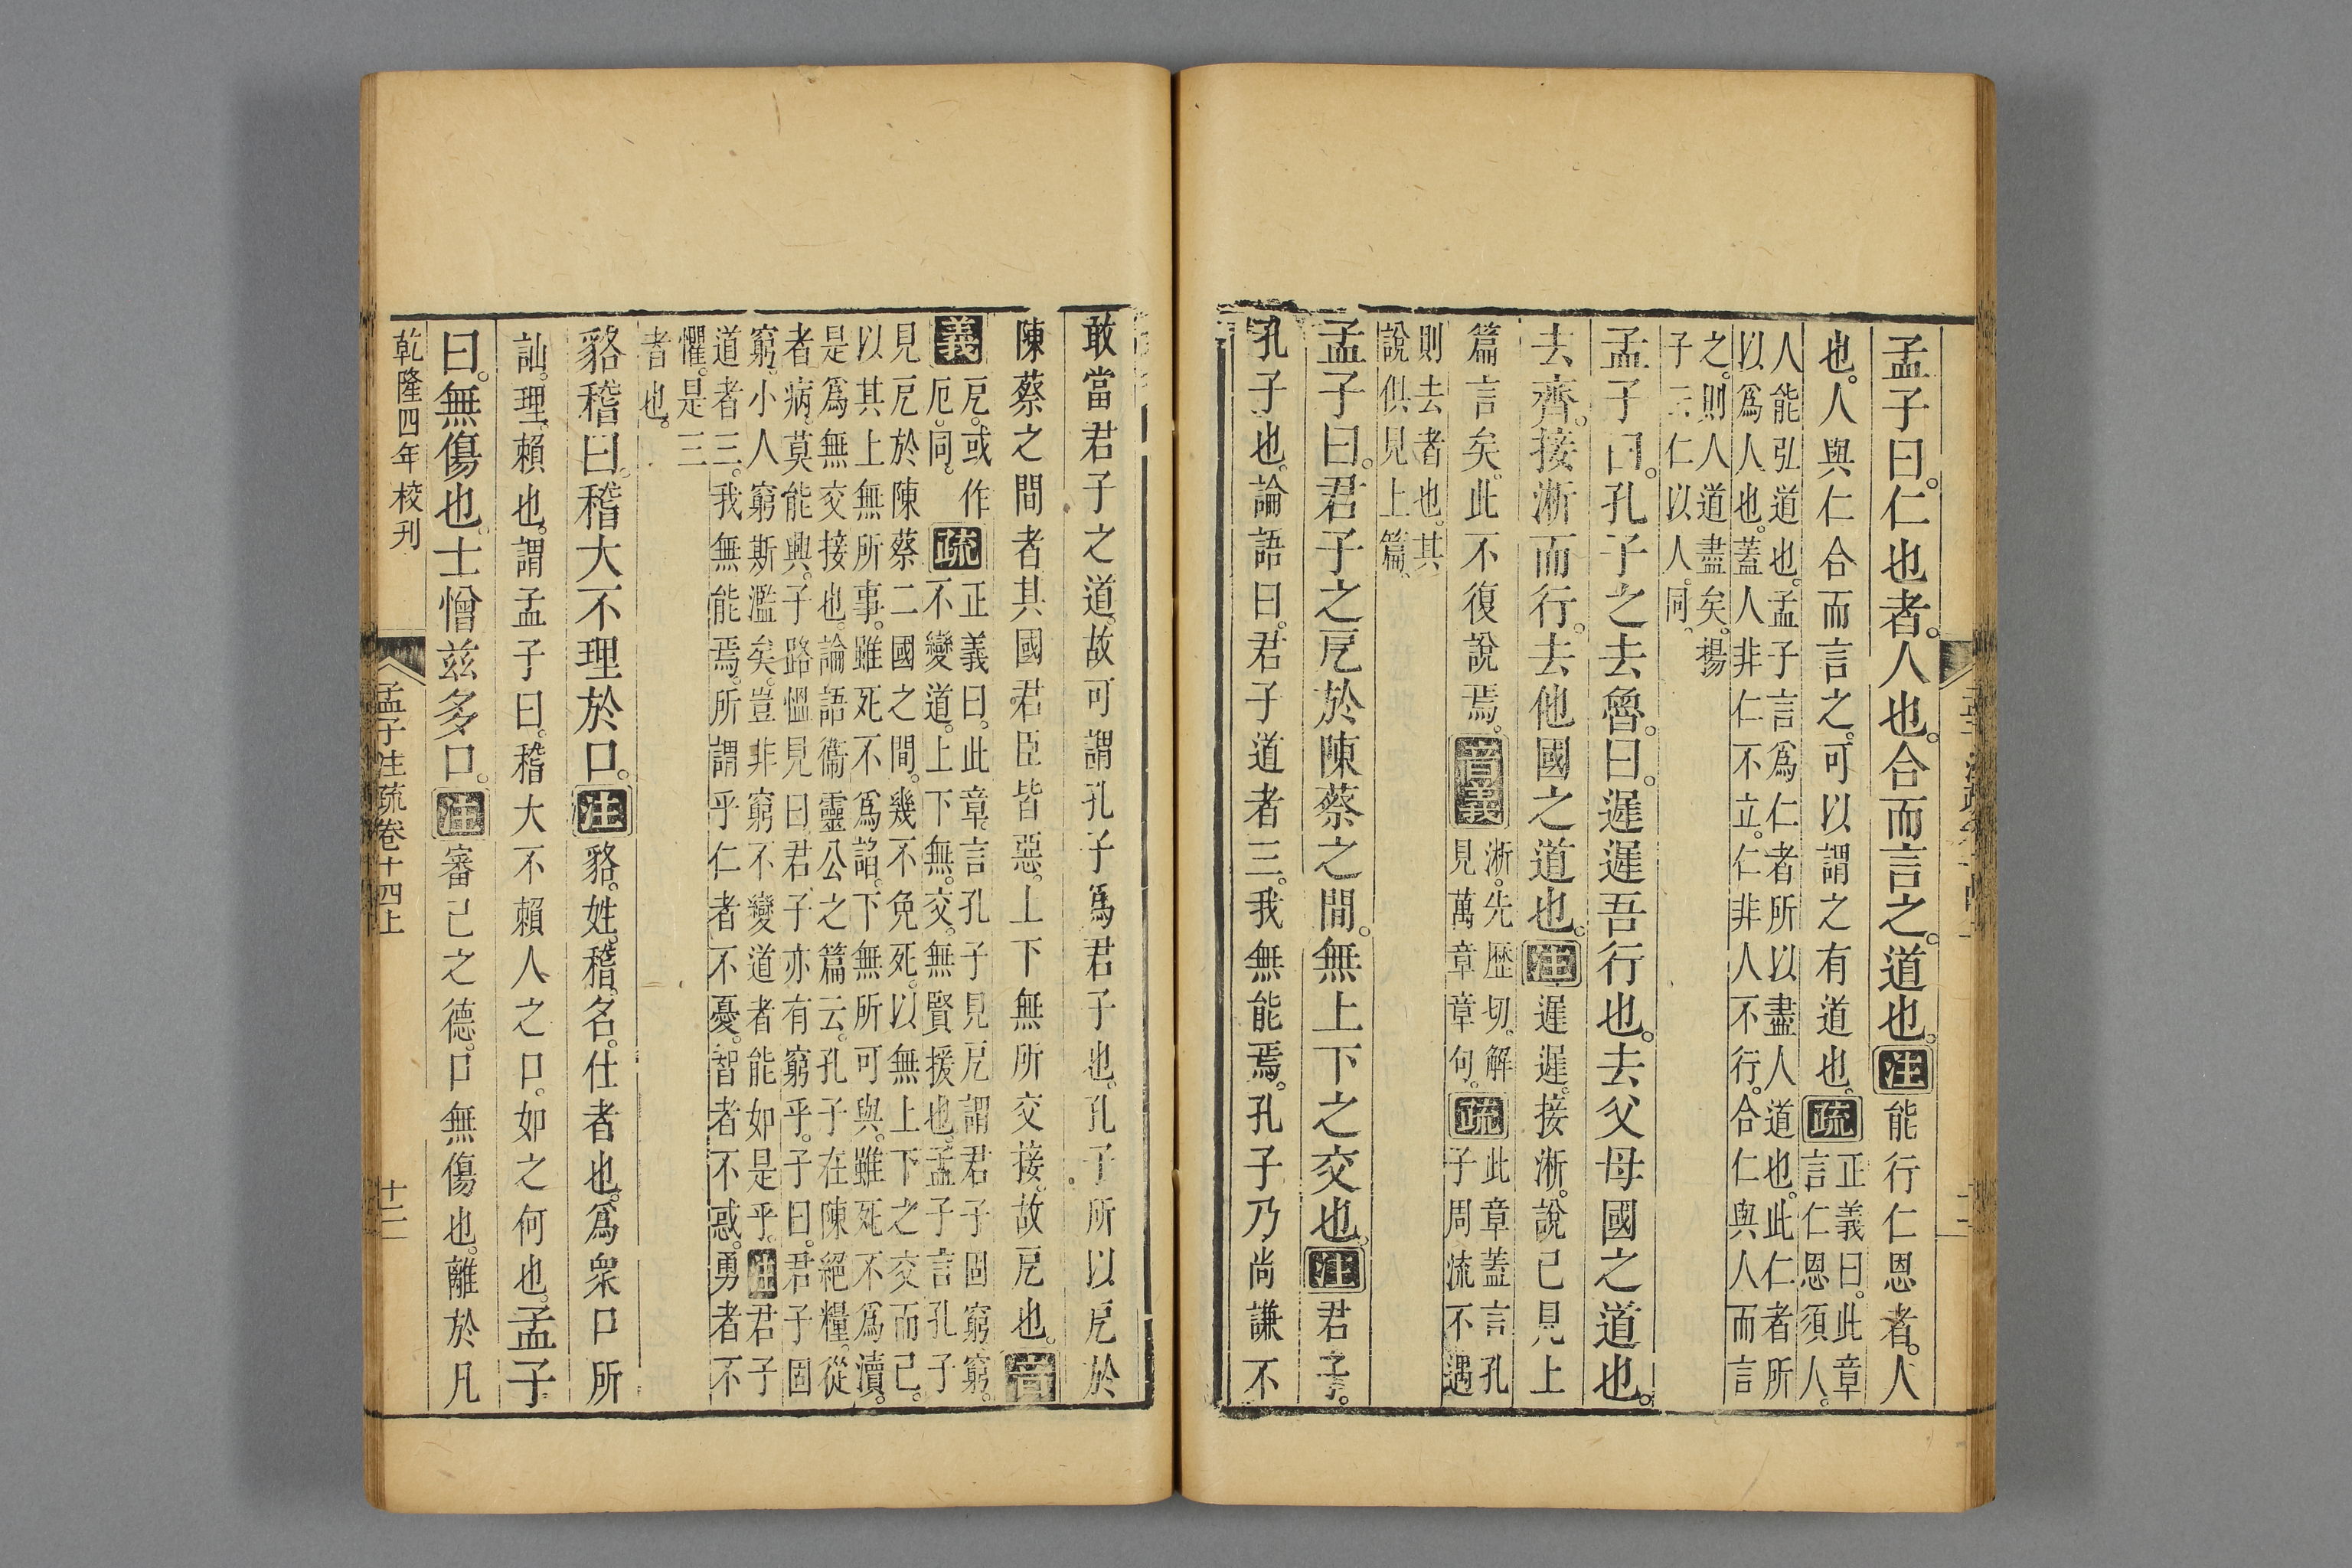 孟子曰。仁也者。人也。合而言之。道也。注能行仁恩者。人
也。人與仁合而言之。可以謂之有道也。疏正義曰。此章
言仁恩須人。
人能弘道也。孟子言爲仁者所以盡人道也。此仁者所
以爲人也。蓋人非仁不立。仁非人不行。合仁與人而言
之。則人道盡矣。揚
子云仁以人。同。
孟子曰。孔子之去魯。曰。遲遲吾行也。去父母國之道也。
去齊。接淅而行。去他國之道也。注遲遲。接淅。說已見上
篇言矣。此不復說焉。音義淅。先歷切。解
見萬章章句。疏此章蓋言孔
子周流不遇
則去者也。其
說俱見上篇。
孟子曰。君子之戹於陳蔡之間。無上下之交也。注君子。
孔子也。論語曰。君子道者三。我無能焉。孔子乃尚謙不
敢當君子之道。故可謂孔子爲君子也。孔子所以戹於
陳蔡之間者其國君臣皆惡。上下無所交接。故戹也。音
義戹。或作
厄。同。疏正義曰。此章言孔子見戹謂君子固窮。窮
不變道。上下無交。無賢援也。孟子言孔子
見戹於陳蔡二國之間。幾不免死。以無上下之交而已。
以其上無所事。雖死不爲諂。下無所可與。雖死不爲瀆。
是爲無交接也。論語衞靈公之篇云。孔子在陳絕糧。從
者病。莫能興。子路慍見曰。君子亦有窮乎。子曰。君子固
窮。小人窮斯濫矣。豈非窮不變道者能如是乎。注君子
道者三。我無能焉。所謂乎仁者不憂。智者不惑。勇者不
懼。是三
者也。
貉稽曰。稽大不理於口。注貉。姓。稽。名。仕者也。爲眾口所
訕。理。賴也。謂孟子曰。稽大不賴人之口。如之何也。孟子
曰。無傷也。士憎兹多口。注審己之德。口無傷也。離於凡
乾隆四年校刊
孟子注疏卷十四上
十二